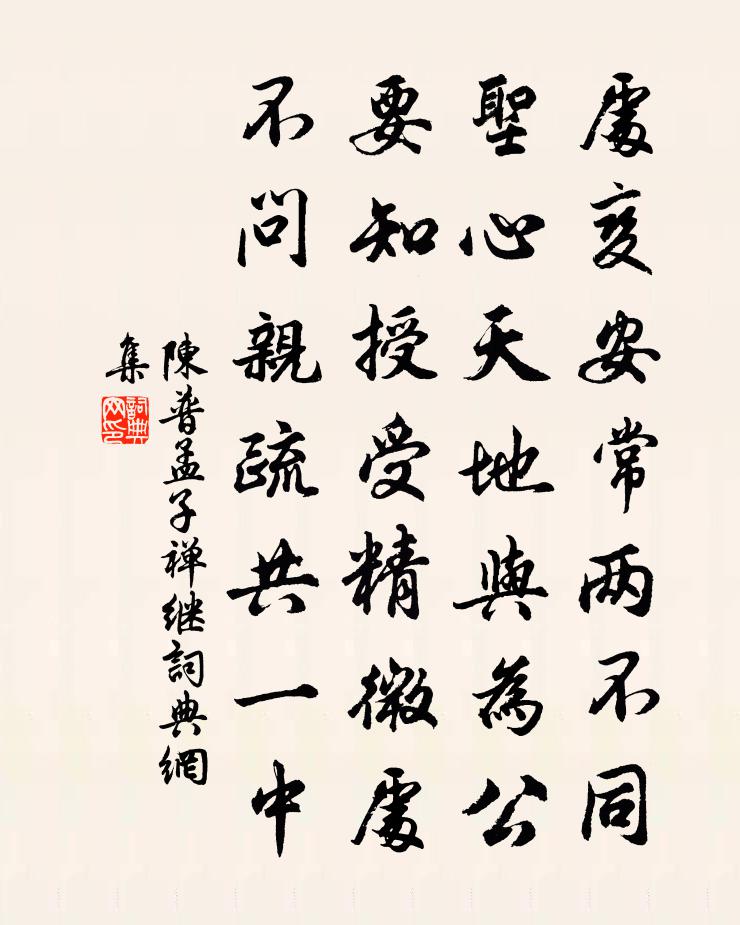 處变安常两不同
聖心天地與為公
要知授受精微處
不問親疏共一中
陳普孟子禅继詞典網
集
詞典
网印